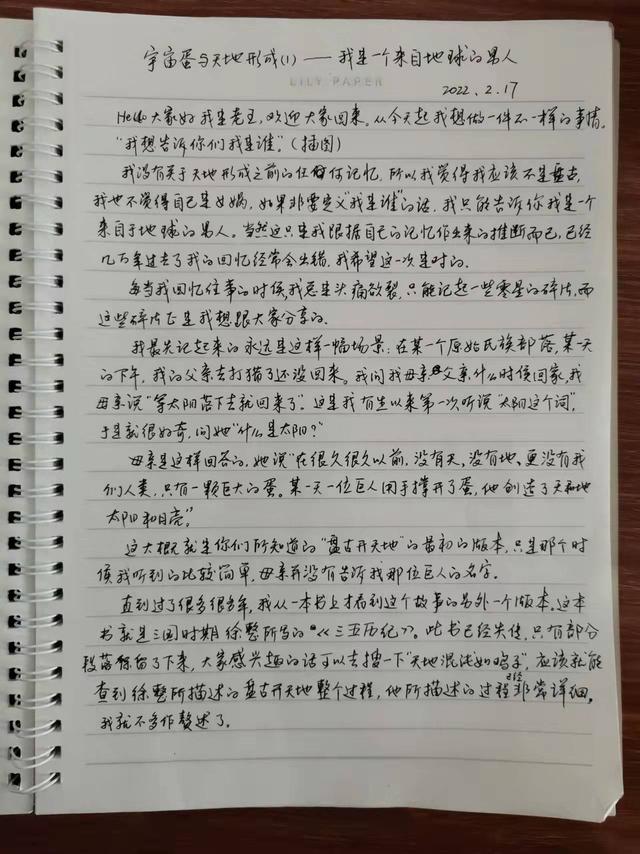 宇宙蛋与天地形成(1) —— 我是一个来自地球的男人
LILY PAPER
2022.2.17
Hello大家好我是老王,欢迎大家回来。从今天起我想做一件不一样的事情。
"我想告诉你们我是谁"(插图)
我没有关于天地形成之前的任何记忆,所以我觉得我应该不是盘古,
我也不觉得自己是女娲,如果非要定义"我是谁"的话,我只能告诉你我是一个
来自于地球的男人。当然这只是我根据自己的记忆作出来的推断而已,已经
几万年过去了我的回忆经常会出错,我希望这一次是对的。
每当我回忆往事的时候,我总是头痛欲裂,只能记起一些零星的碎片,而
这些碎片正是我想跟大家分享的。
我最先记起来的永远是这样一幅场景:在某一个原始氏族部落,某一天
的下午,我的父亲去打猎了还没回来。我问我母亲父亲什么时候回家,我
母亲说"等太阳落下去就回来了"。这是我有生以来第一次听说"太阳这个词",
于是就很好奇,问她"什么是太阳?"
母亲是这样回答的,她说"在很久很久以前,没有天,没有地、更没有我
们人类,只有一颗巨大的蛋。某一天一位巨人用手撑开了蛋,他创造了天和地
太阳和月亮。"
这大概就是你们所知道的"盘古开天地"的最初的版本,只是那个时
候我听到的比较简单,母亲并没有告诉我那位巨人的名字。
直到过了很多很多年,我从一本书上才看到这个故事的另外一个版本。这本
书就是三国时期徐整所写的《三五历纪》。此书已经失传,只有部分
段落保留了下来,大家感兴趣的话可以去搜一下"天地混沌如鸡子",应该就能
查到徐整所描述的盘古开天地整个过程,他所描述的过程已经非常详细,
我就不多作赘述了。